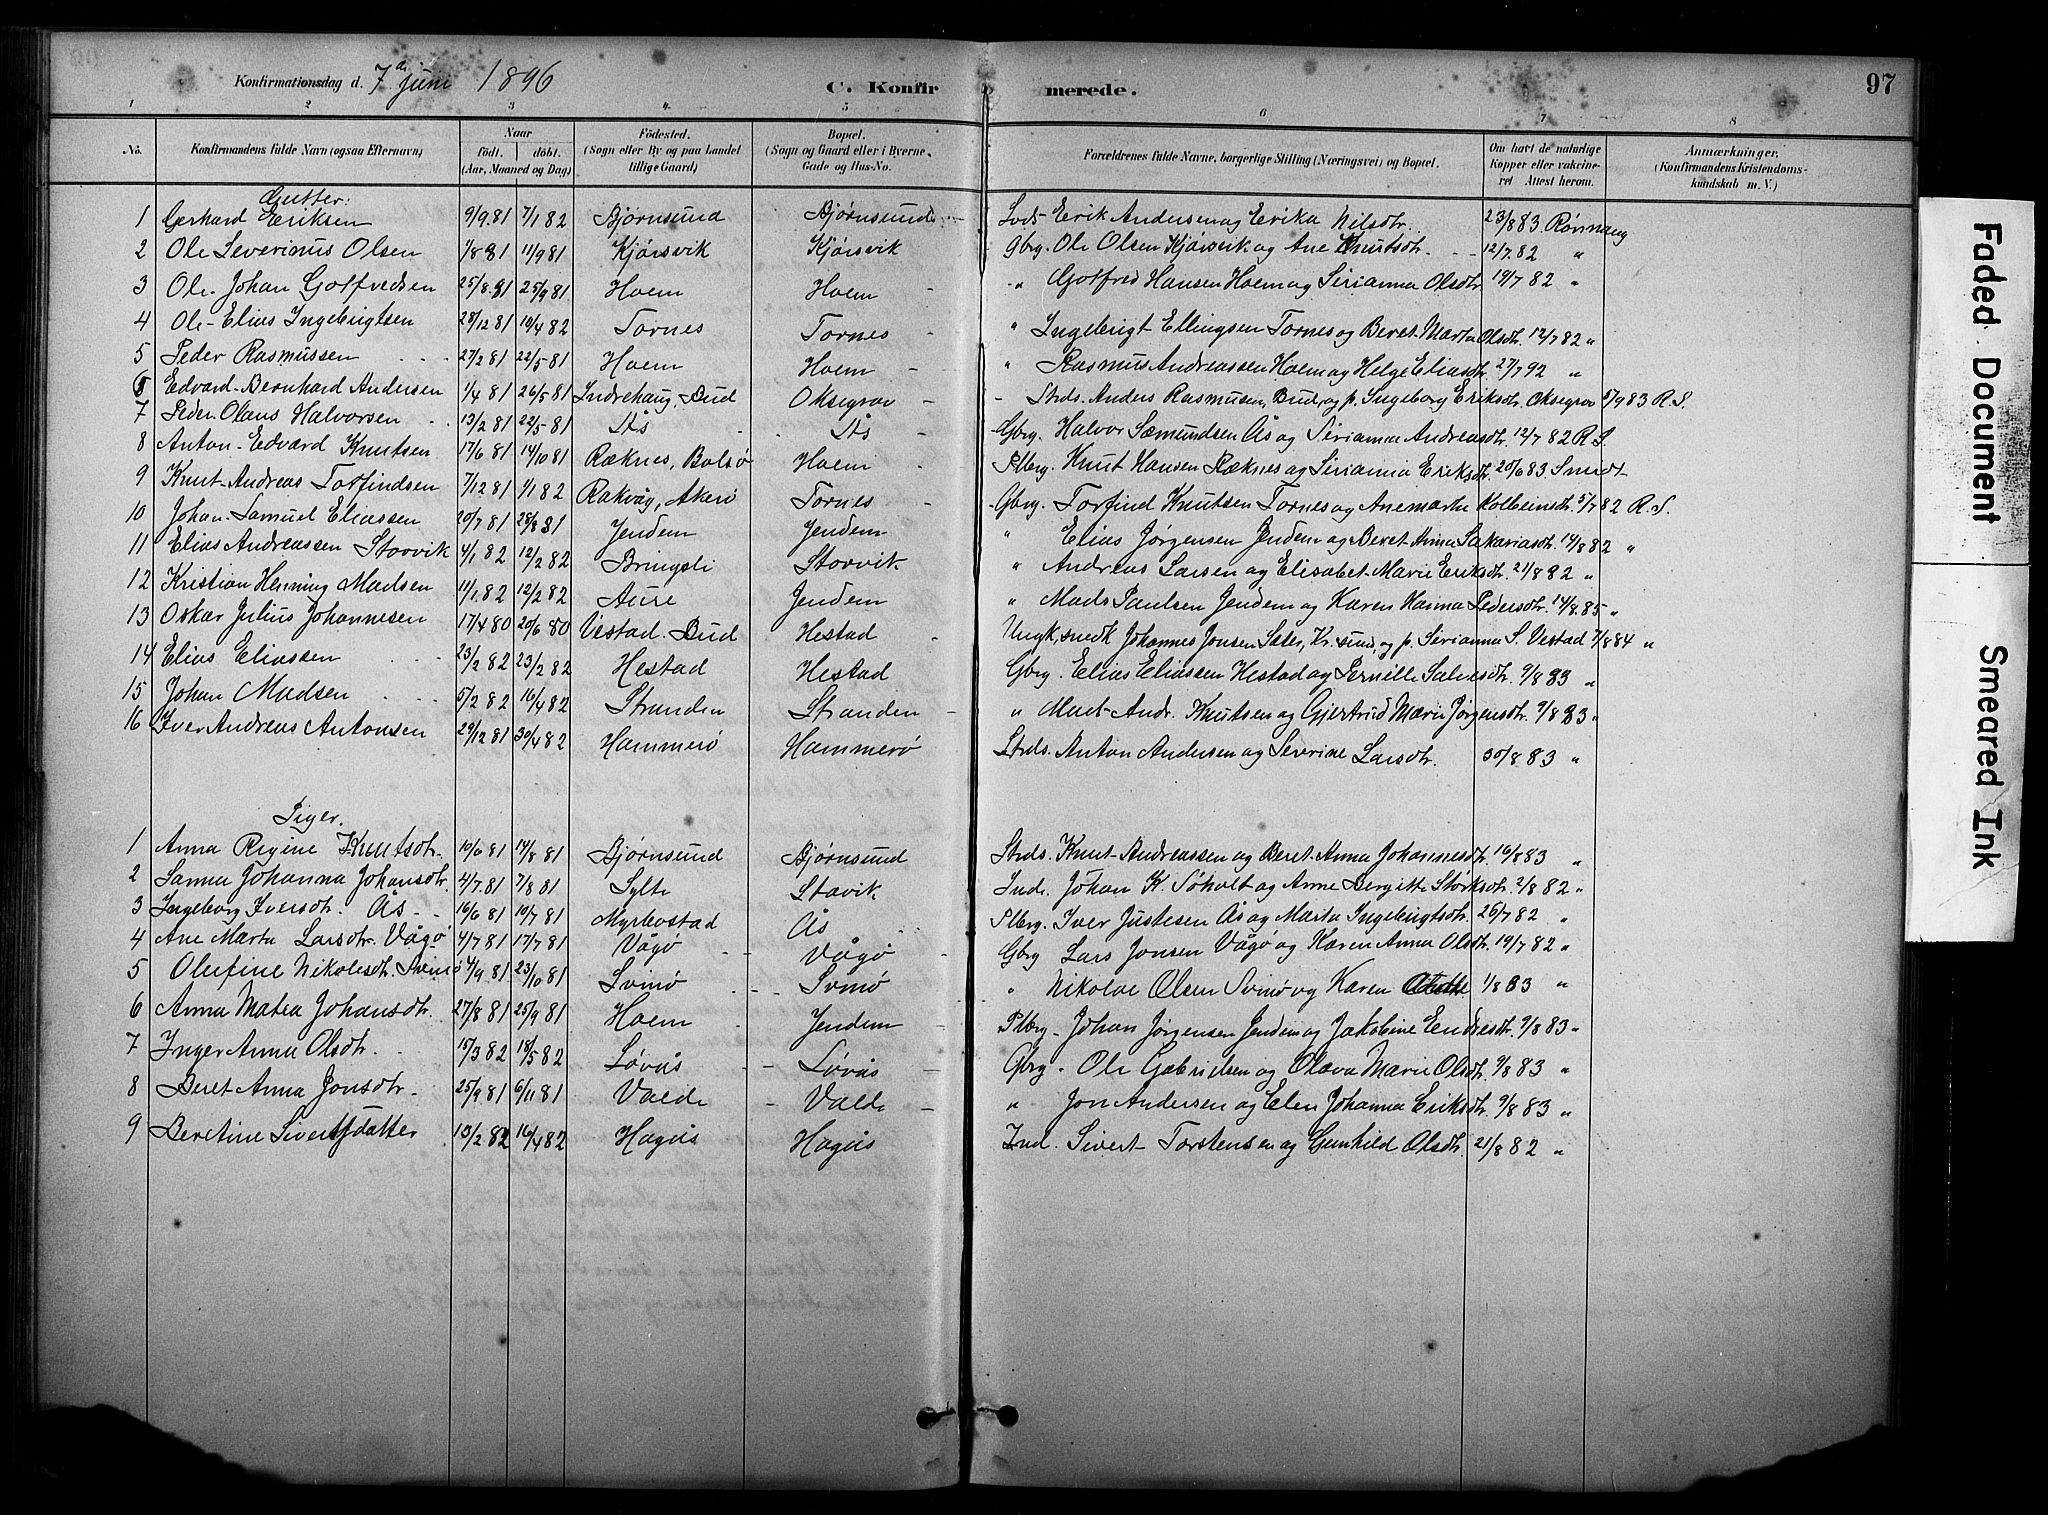 Konfirmationsdag d. 7de juni 1896 C. Konfirmerede. 97
1 2 3 4 5 6 7 8
No. Konfirmandens fulde Navn (ogsaa Efternavn) Naar födt. döbt. (Aar, Maaned og Dag) Födested. (Sogn eller By og paa Landet tillige Gaard) Bopæl. (Sogn og Gaard eller i Byerne, Gade og Hus-No. Forældrenes fulde Navne, borgerlige Stilling (Næringsvei) og Bopæl. Om havt de naturlige Kopper eller vakcineret Attest herom. Anmærkninger. (Konfirmandens Kristendomskundskab m. V.)
Gutter:
1 Gerhard Eriksen 9/9 81 7/1 82 Bjørnsund Bjørnsund Erik Andersen og Erika Nilsdtr. 23/8 83
2 Ole Severinus Olsen 1/8 81 11/9 81 Kjørsvik Kjørsvik Gbrg. Ole Olsen Kjørsvik og Ane Knutsdtr. 12/7 82 "
3 Ole Johan Gotfredsen 25/8 81 25/9 81 Hoem Hoem " Gotfred Hansen Hoem og Serianna Olsdtr 19/7 82 "
4 Ole Elias Ingebrigtsen 28/12 81 10/4 82 Tornes Tornes " Ingebrigt Ellingsen Tornes og Beret Marta Olsdtr. 12/7 82 "
5 Peder Rasmussen 27/2 81 22/5 81 Hoem Hoem " Rasmus Andreassen Hoem og Helge Eliasdtr 27/7 92 "
6 Edvard Bernhard Andersen 1/4 81 26/5 81 Indrehaug, Bud Oksegrov Strds. Anders Rasmusen, Bud, og p. Ingeborg Eriksdtr. Oksegrov 5/9 83 R.S.
7 Peder Olaus Halvorsen 13/2 81 22/5 81 Ås Ås Gbrg. Halvor Sæmundsen Ås og Serianna Andreasdtr. 12/7 82 R.S.
8 Anton Edvard Knutsen 17/6 81 14/10 81 Ræknes, Bolsø Hoem Plbrg. Knut Hansen Ræknes og Serianna Eriksdtr. 20/6 83
9 Knut Andreas Torfindsen 7/12 81 1/1 82 Rakvåg, Akerø Tornes Gbrg. Torfind Knutsen Tornes og Anemarta Kolbeinsdtr. 5/7 82 R.S.
10 Johan Samuel Eliassen 20/7 81 28/8 81 Jendem Jendem " Elias Jørgensen Jendem og Beret Anna Sakariasdtr. 14/8 82 "
11 Elias Andreassen Storvik 4/1 82 12/2 82 Bringsli Storvik " Andreas Larsen og Elisabet Marie Eriksdtr. 21/8 82 "
12 Kristian Henning Madsen 11/1 82 12/2 82 Aure Jendem " Mads Paulsen Jendem og Karen Hanna Pedersdtr. 14/8 85 "
13 Oskar Julius Johannesen 17/4 80 20/6 80 Vestad. Bud Hestad Ungk, snedk Johannes Jonsen Sater, Kr.sund, og p. Serianna S. Vestad 7/8 84 "
14 Elias Eliassen 23/2 82 23/2 82 Hestad Hestad Gbrg. Elias Eliassen Hestad og Pernille Salvesdtr. 9/8 83 "
15 Johan Madsen 5/2 82 16/4 82 Stranden Stranden " Mads Andr. Knutsen og Gjertrud Marie Jørgensdtr. 9/8 83 "
16 Iver Andreas Antonsen 29/12 81 30/4 82 Hammerø Hammerø Strds. Anton Andersen og Severine Larsdtr. 30/8 83 "
Piger.
1 Anna Regine Knutsdtr. 10/6 81 14/8 81 Bjørnsund Bjørnsund Strds. Knut Andreassen og Beret Anna Johannesdtr. 16/8 83 "
2 Sanna Johanna Johansdtr. 4/7 81 7/8 81 Sylte Stavik Ind. Johan K. Søholt og Anne Bergitte Størksdtr. 2/8 82 "
3 Ingeborg Iversdtr. Ås 16/6 81 10/7 81 Myrbostad Ås Plbrg. Iver Justesen Ås og Marta Ingebrigtsdtr. 26/7 82 "
4 Ane Marta Larsdtr. Vågø 4/7 81 17/7 81 Vågø Vågø Gbrg Lars Jonsen Vågø og Karen Anna Olsdtr. 19/7 82 "
5 Olufine Nikolesdtr. Svinø 4/9 81 23/10 81 Svinø Svinø " Nikolai Olsen Svinø og Karen 1/8 83 "
6 Anna Matea Johansdtr. 27/8 81 25/9 81 Hoem Jendem Plbrg. Johan Jørgensen Jendem og Jakobine Endresdtr. 9/8 83 "
7 Inger Anna Olsdtr. 15/3 82 18/5 82 Løvås Løvås Gbrg. Ole Gabrielsen og Olava Marie Olsdtr. 9/8 83 "
8 Beret Anna Jonsdtr. 25/9 81 6/11 81 Valde Valde " Jon Andersen og Elen Johanna Eriksdtr. 9/8 83 "
9 Beretine Sivertsdatter 13/2 82 16/4 82 Hagås Hagås Ind. Sivert Torstensen og Gunhild Olsdtr. 21/8 82 "
Faded Document
Smeared Ink